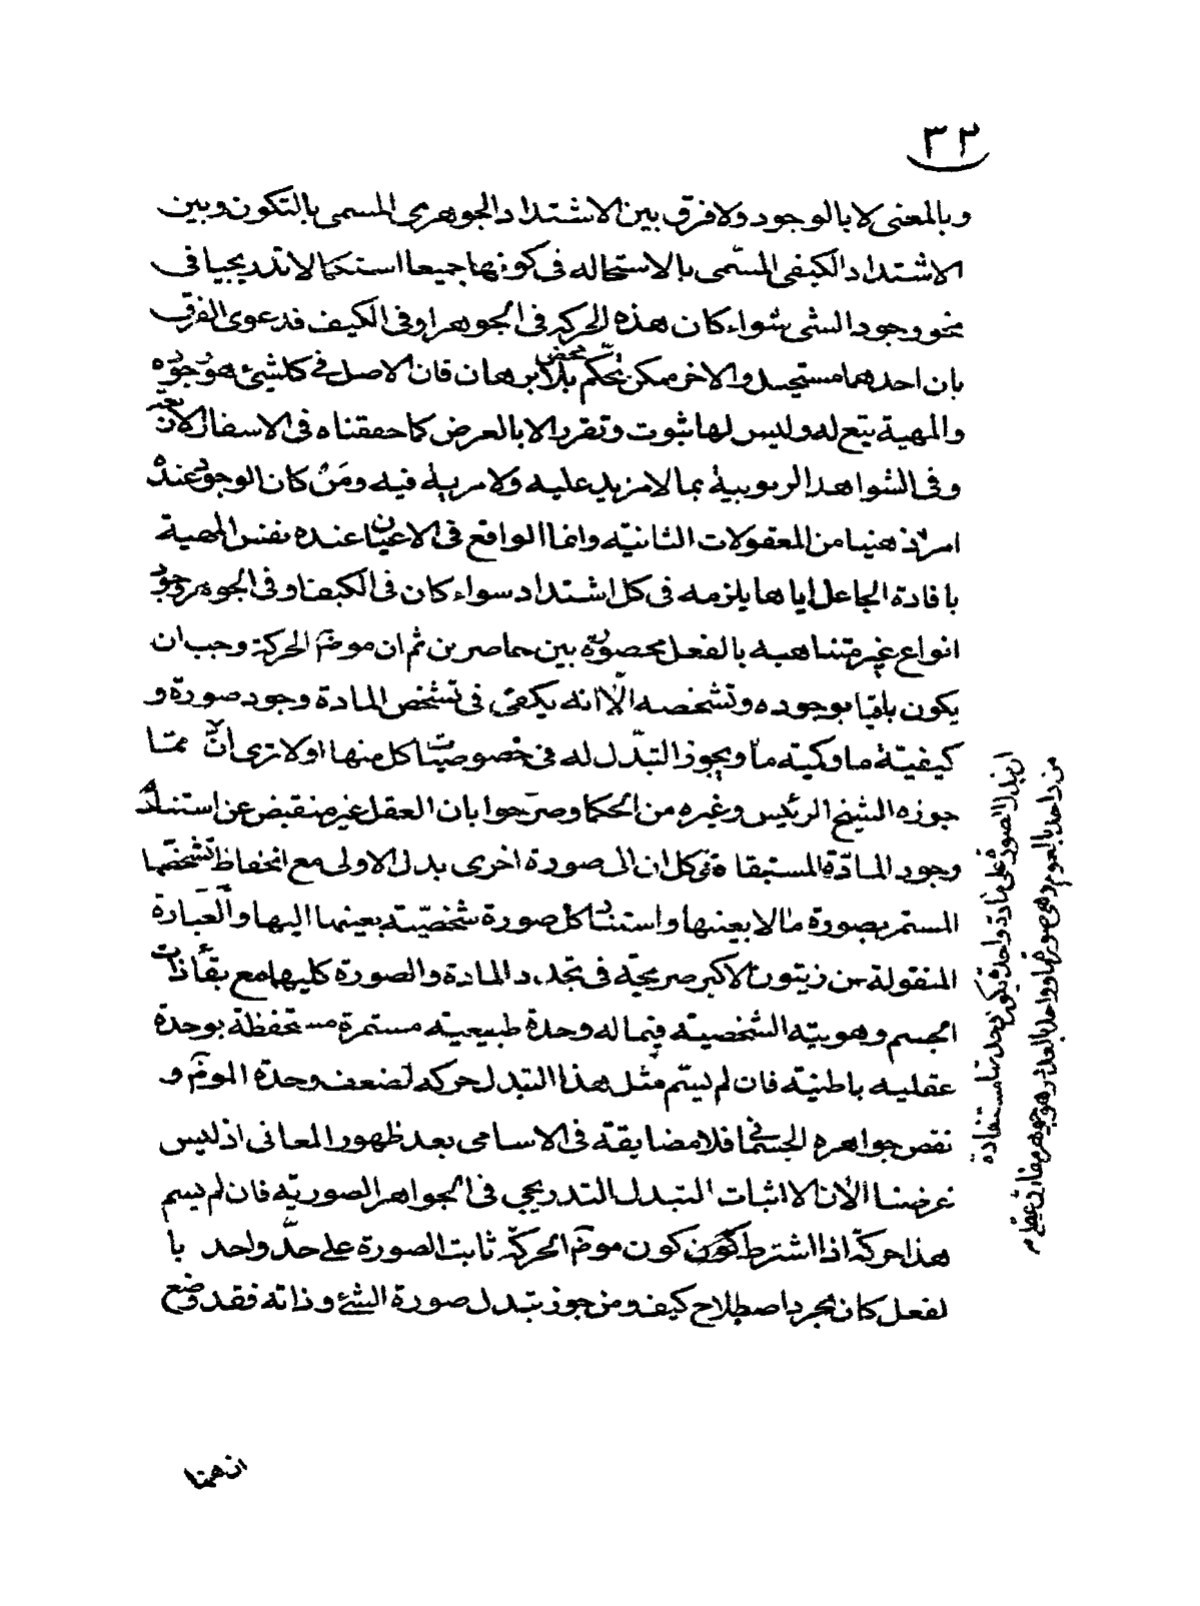 ٣٢
وبالمعنى لا بالوجود ولا فرق بين الاشتداد الجوهرى المسمى بالتكون وبين
الاشتداد الكيفى المسّمى بالاستحاله فى كونهما جميعا استكمالا تدريجيا فى
نحو وجود الشى سواء كان هذه الحركه فى الجوهر او فى الكيف فدعوى الفرق
بان احدهما مستحيل والاخر ممكن تحكّم محض بلا برهان فان الاصل فى كلشئ هو وجوده
والمهية يتبع له وليس لها ثبوت وتقرر الا بالعرض كما حققناه فى الاسفار الاربعة
وفى الشواهد الربوبية بما لا مزيد عليه ولا مرية فيه ومَنْ كان الوجود عنده
امرا ذهنيا من المعقولات الثانيّه وانما الواقع فى الاعيان عنده نفس المهية
بافادة الجاعل اياها يلزمه فى كل اشتداد سواء كان فى الكيف او فى الجوهر وجود
انواع غير متناهيه بالفعل محصورة بين حاصرين ثم ان موضع الحركة وجب ان
يكون باقيا بوجوده وتشخصه الّا انه يكفى فى تشخص المادة وجود صورة و
كيفيّة ما وكميّه ما ويجوز التبدّل له فى خصوصيات كل منها اولا ترى انّ ممّا
جوزه الشيخ الرئيس وغيره من الحكما وصرّحوا بان العقل غير منقبض عن استناد
وجود المادّة المستبقاة فى كل ان الى صورة اخرى بدل الاولى مع انحفاظ تشخصّها
المستمر بصورة ما لا بعينها واستناد كل صورة شخصّيّته بعينها اليها والعبارة
المنقولة من زيتون الاكبر صريحّة فى تجدد المادة والصورة كليهما مع بقاء ذات
الجسم وهويته الشخصيته فيما له وحدة طبيعيته مستمرة مستحفظة بوحدة
عقليه باطنيّه فان لم يسّم مثل هذا التبدل حركه لضعف وحدة الموضع و
نقص جواهره الجسمانى فلا مضايقة فى الاسامى بعد ظهور المعانى اذ ليس
غرضنا الان الا اثبات التبدل التدريجى فى الجواهر الصوريّه فان لم يسم
هذا حركة اذا اشترط كون موضع الحركة ثابت الصورة على حدّ واحد با
لفعل كان مجرد اصطلاح كيف ومن جوز تبدل صورة الشئ وذاته فقد وضع
ان تبدل الصور على مادة واحدة يكون وحدتها مستفادة
من واحد بالعموم وهى صورة ما وواحد بالعدد وهو جوهر مفارق عقلى م
ان همنا